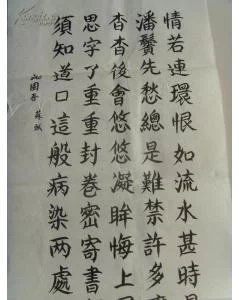 情若連環恨如流水甚時是
潘鬢先愁總是難禁許多
杳杳後會悠悠凝眸悔上
思字了重重封卷密寄書
須知道口這般病染两處
沁園春 蘇軾